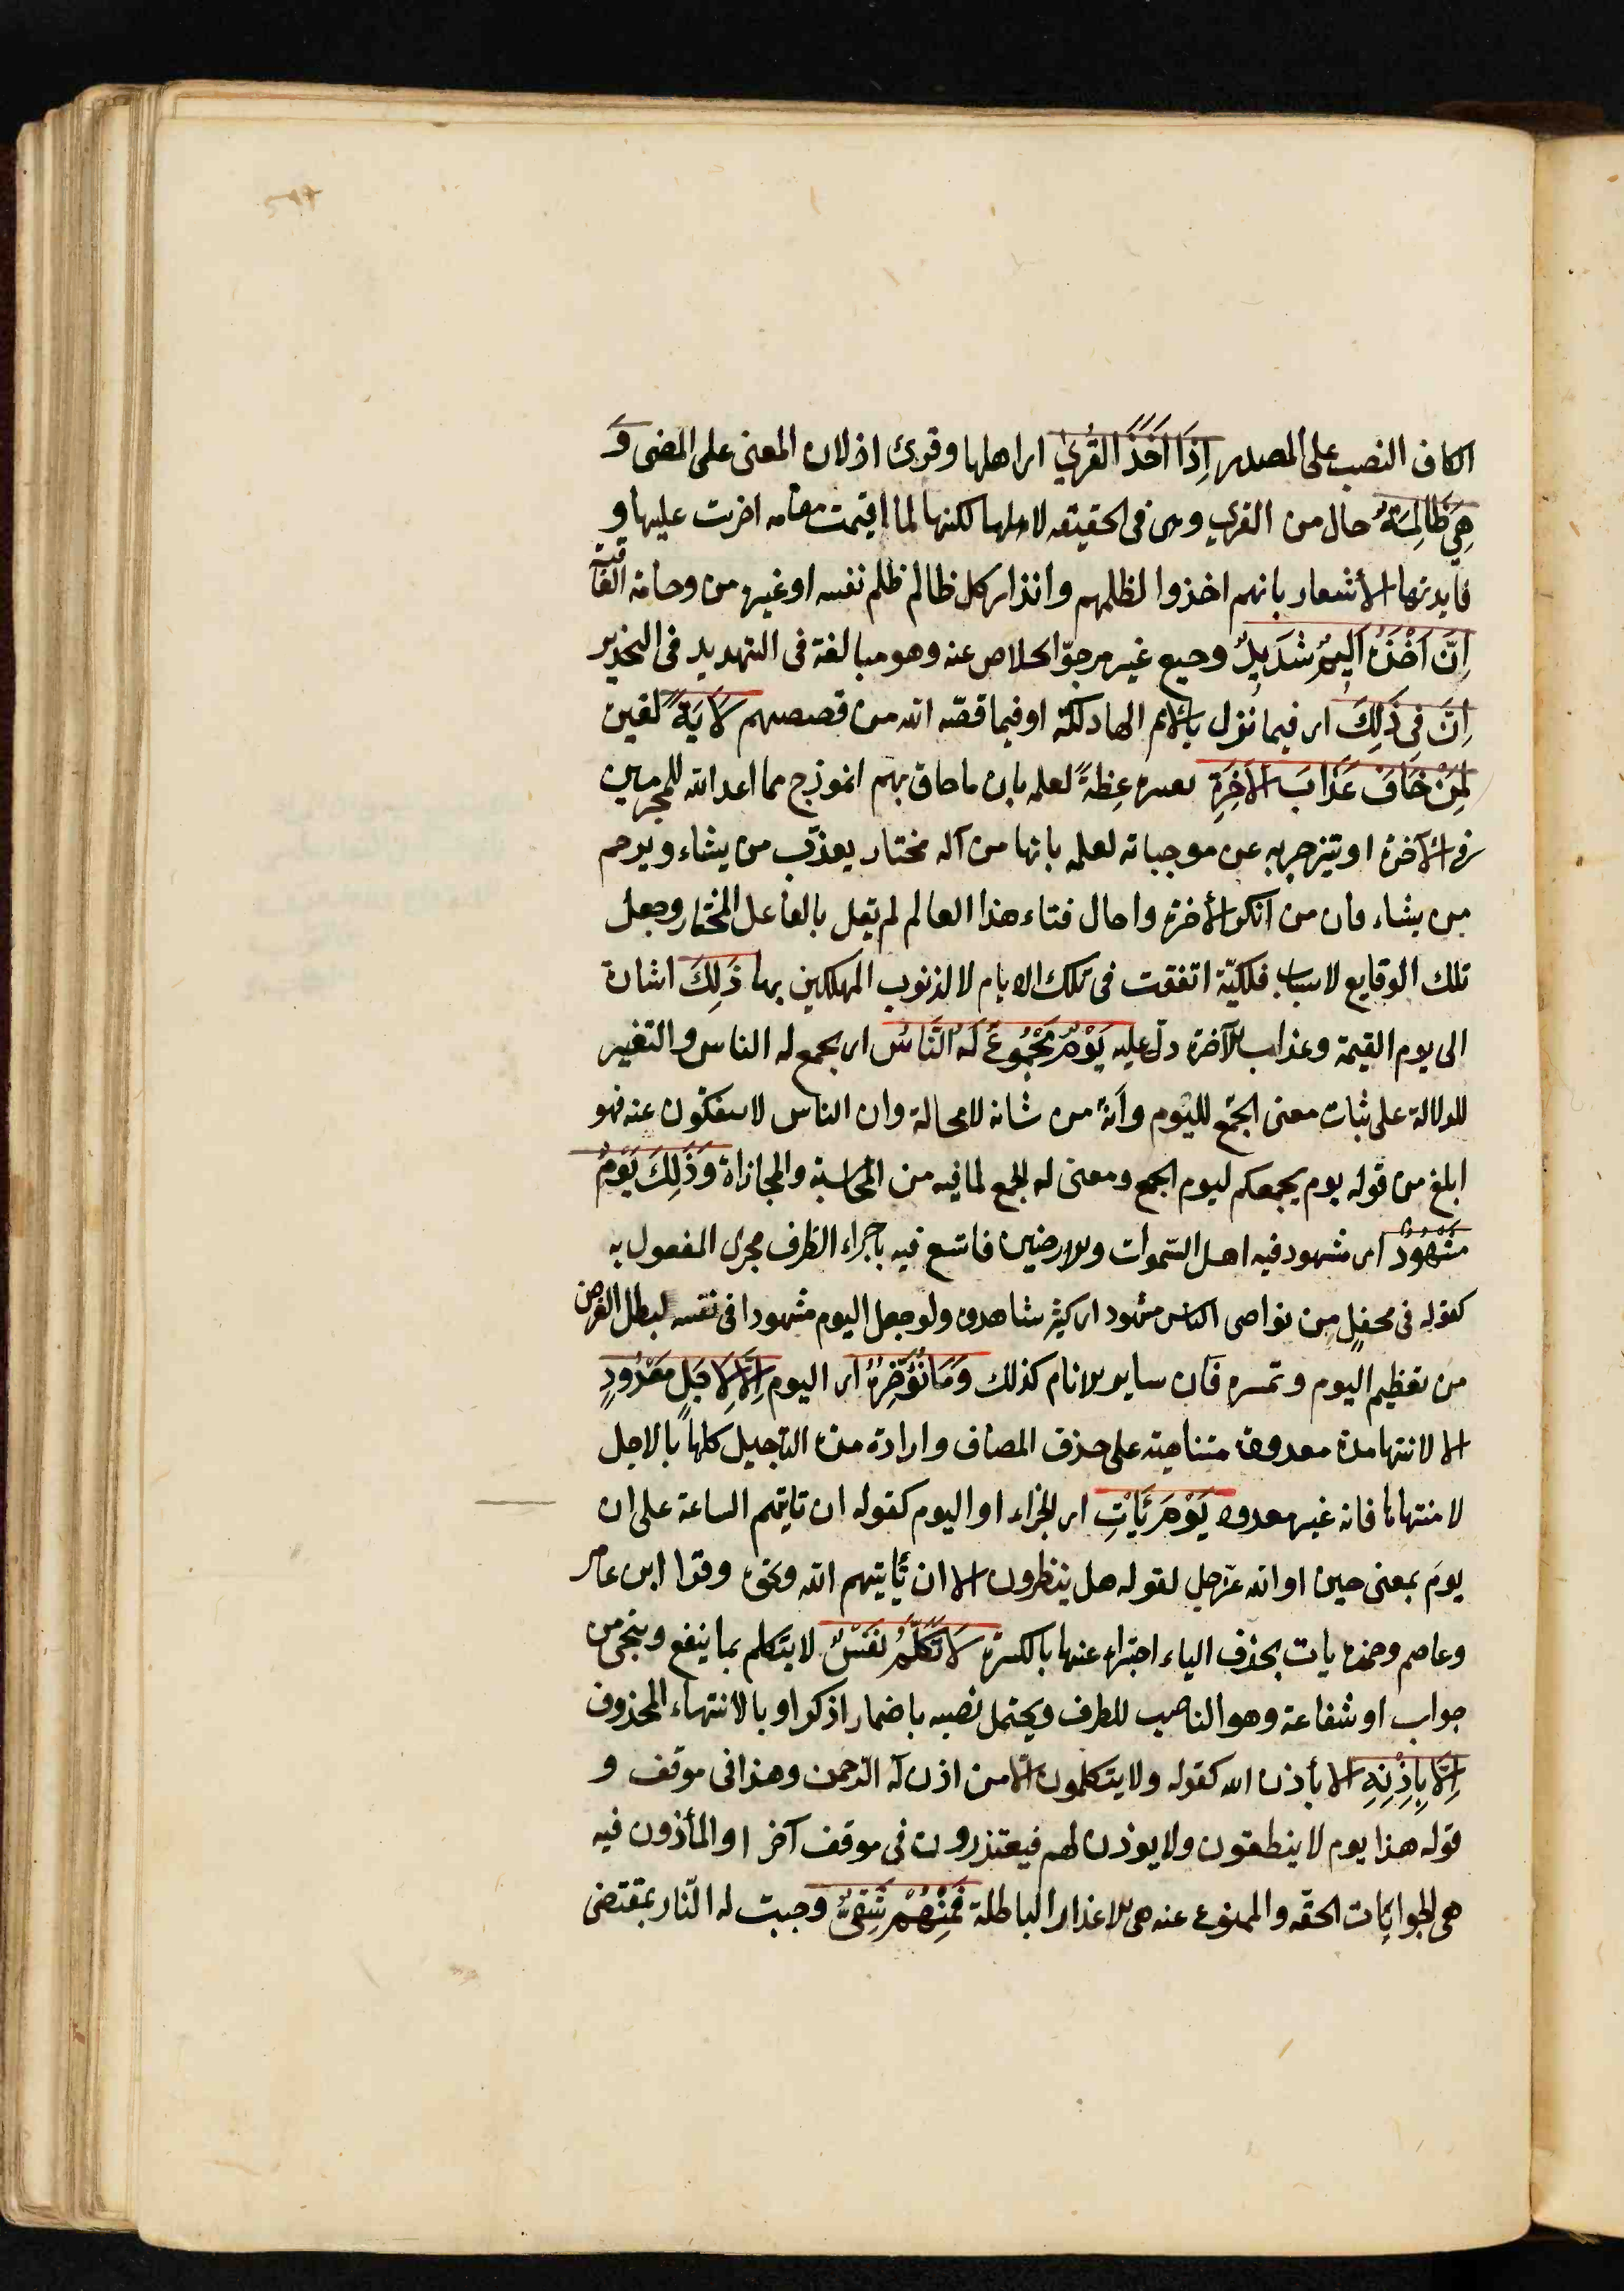 الكاف النصب على المصدر اِذَا اَخَذَ القُرىٰ اى اهلها وقرئ اذ لان المعنى على المضى وَ
هِىَ ظَالِمَةٌ حال من القرى وهى فى الحقيقة لاهلها لكنها لما اقيمت مقامه اجريت عليها و
فايدتها الأشعار بانهم اخذوا لظلمهم وانذار كل ظالم ظلم نفسه او غيره من وخامة العاقبة
اِنَّ اَخْذَهُ اَلِيمٌ شَدِيدٌ وجيع غير مرجوّ الخلاص عنه وهو مبالغة فى التهديد فى التحذير
اِنَّ فِى ذٰلِكَ اى فيما نزل بالأمم الهالكة او فيما قصّه الله من قصصهم لَآيَةً لعبرة
لِمَنْ خَافَ عَذَابَ الآخِرَةِ يعتبره عِظةً لعلمه بان ما حاق بهم انموذج مما اعد الله للمجرمين
فى الآخرة او ينزجر به عن موجباته لعلمه بانها من اله مختار يعذّب من يشاء ويرحم
من يشاء فان من انكر الأخرة واحال فناء هذا العالم لم يقل بالفاعل المختار وجعل
تلك الوقايع لاسباب فلكيّة اتفقت فى تلك الايام لا لذنوب المهلكين بها ذٰلِكَ اشارة
الى يوم القيمة وعذاب الآخرة دلّ عليه يَوْمٌ مَجْمُوعٌ لَهُ النَّاسُ اى يجمع له الناس والتغيير
للدلالة على ثبات معنى الجمع لليوم وأنّه من شانه لا محالة وان الناس لا ينفكون عنه فهو
ابلغ من قوله يوم يجمعكم ليوم الجمع ومعنى له الجمع لما فيه من المحاسبة والمجازاة وَذٰلِكَ يَوْمٌ
مَشْهُودٌ اى مشهود فيه اهل السّموات والارضين فاتسع فيه باجراء الظرف مجرى المفعول به
كقوله فى محفلٍ من نواصى الناس مشهود اى كثير شاهدوه ولو جعل اليوم مشهودا فى نفسه لبطل الغرض
من تعظيم اليوم وتميزه فان ساير الايام كذلك وَمَا نُؤَخِّرُهُ اى اليوم اِلَّا لِاَجَلٍ مَعْدُودٍ
الا لانتهاء مدة معدودة متناهية على حذف المضاف وارادة مدة التأجيل كلهاً بالاجل
لا منتهاها فانه غير معدود يَوْمَ يَاْتِ اى الجزاء او اليوم كقوله ان تاتيهم الساعة على ان
يوم بمعنى حين او الله عزّ وجل لقوله هل ينظرون الا ان يأتيهم الله ونحوه وقرا ابن عامر
وعاصم وحمزة يات بحذف الياء اجتزاء عنها بالكسرة لَا تَكَلَّمُ نَفْسٌ لا يتكلم بما ينفع وينجى من
جواب او شفاعة وهو الناصب للظرف ويحتمل نصبه باضمار اذكر او بالانتهاء المحذوف
اِلَّا بِاِذْنِهِ الا بأذن الله كقوله ولا يتكلمون الّا من اذن له الرّحمن وهذا فى موقف و
قوله هذا يوم لا ينطقون ولا يوذن لهم فيعتذرون فى موقف آخر او المأذون فيه
هى الجوابات الحقّه والممنوع عنه هى الاعذار الباطلة فَمِنْهُمْ شَقِىٌّ وجبت له النّار بمقتضى